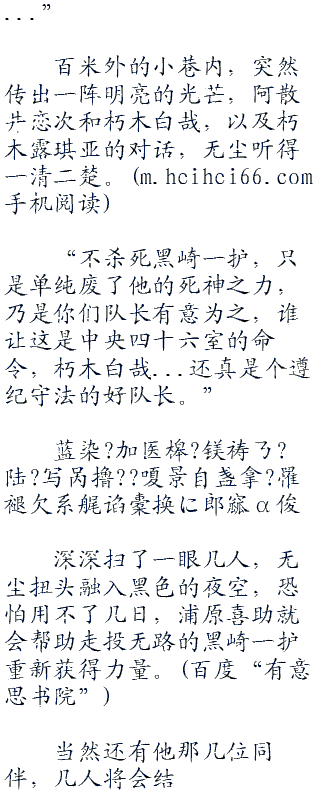 ...”
百米外的小巷内，突然
传出一阵明亮的光芒，阿散
井恋次和朽木白哉，以及朽
木露琪亚的对话，无尘听得
一清二楚。(m.hcihci66.com
手机阅读)
“不杀死黑崎一护，只
是单纯废了他的死神之力，
乃是你们队长有意为之，谁
让这是中央四十六室的命
令，朽木白哉...还真是个遵
纪守法的好队长。”
蓝染?加医槔?镁祷ㄋ?
陆?写呙撸??嗄景自盏拿?罹
褪欠系艉谄橐换に郎窳α俊
深深扫了一眼几人，无
尘扭头融入黑色的夜空，恐
怕用不了几日，浦原喜助就
会帮助走投无路的黑崎一护
重新获得力量。(百度“有意
思书院”)
当然还有他那几位同
伴，几人将会结